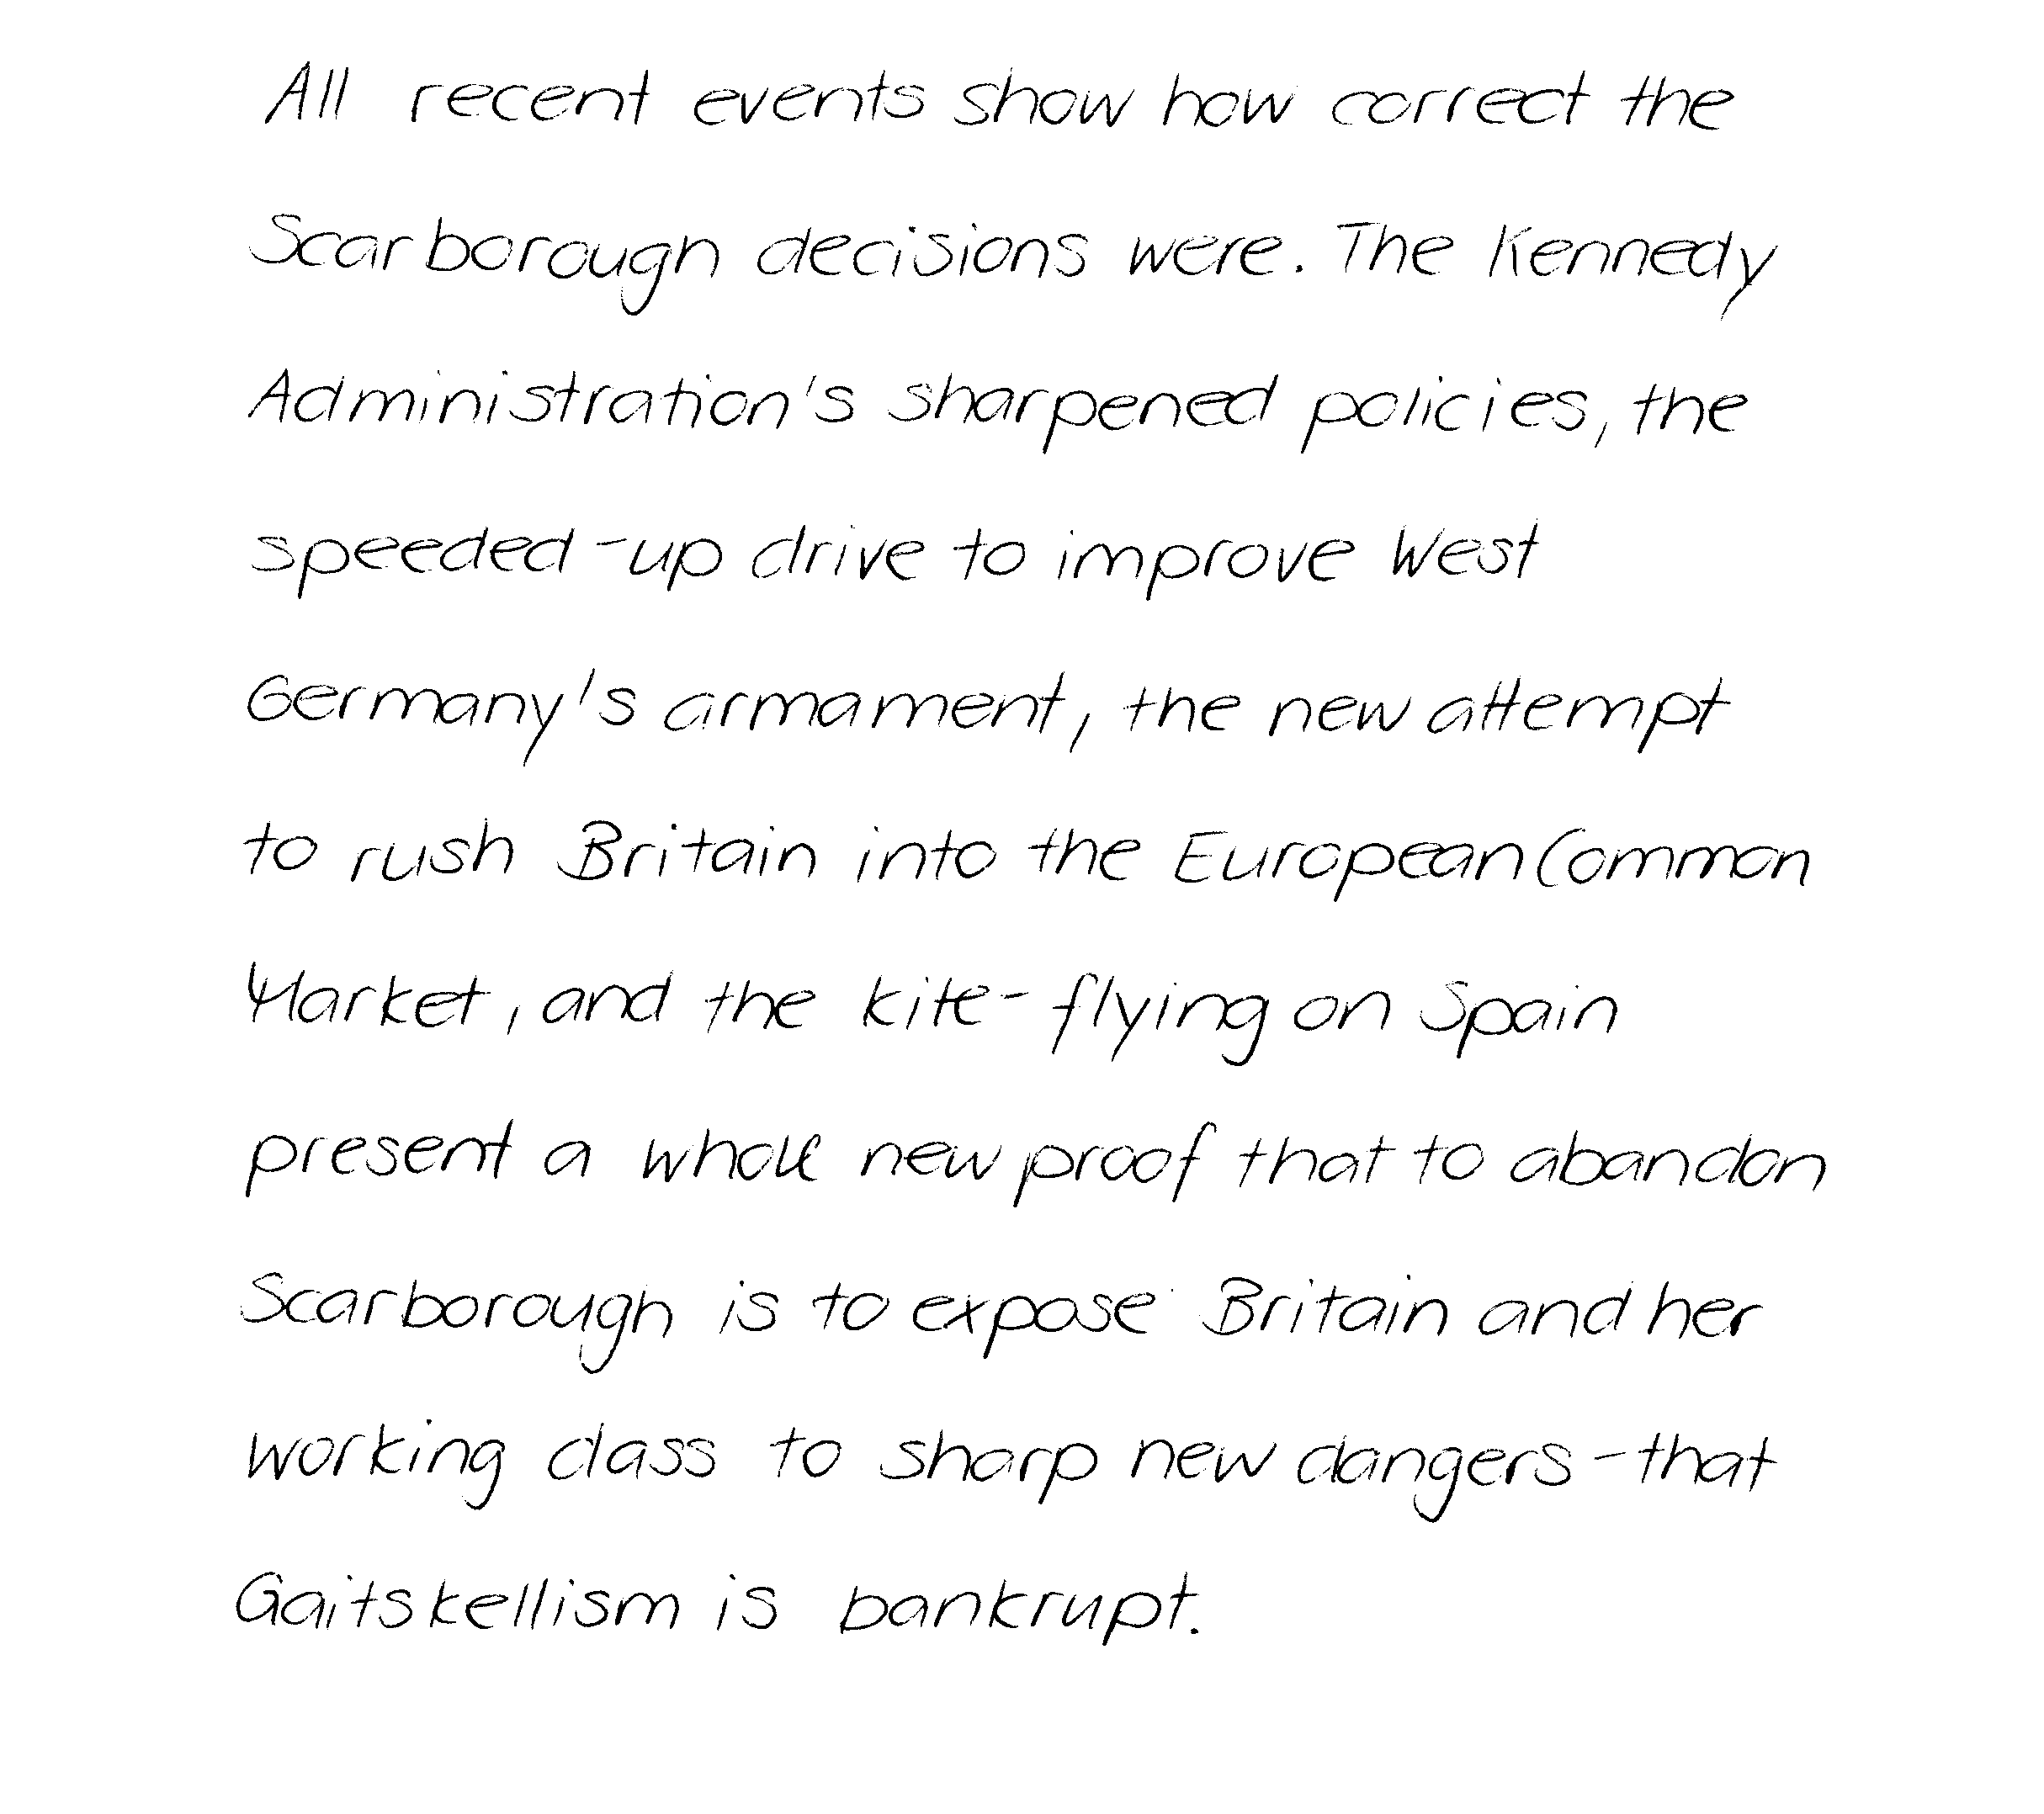 All recent events show how correct the
Scarborough decisions were. The Kennedy
Administration's sharpened policies, the
speeded-up drive to improve West
Germany's armament, the new attempt
to rush Britain into the European Common
Market, and the kite-flying on Spain
present a whole new proof that to abandon
Scarborough is to expose Britain and her
working class to sharp new dangers - that
Gaitskellism is bankrupt.